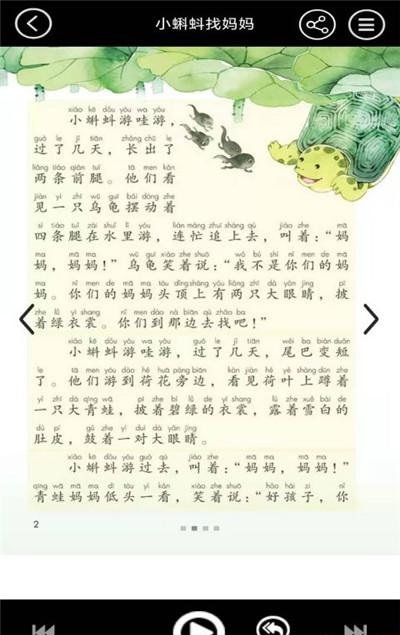 小蝌蚪找妈妈
xiǎo kē dǒu yóu wa yóu
小蝌蚪游哇游,
guò le jǐ tiān zhǎng chū le
过了几天,长出了
liǎng tiáo qián tuǐ tā men kàn
两条前腿。他们看
jiàn yì zhī wū guī bǎi dòng zhe
见一只乌龟摆动着
sì tiáo tuǐ zài shuǐ lǐ yóu lián máng zhuī shàng qù jiào zhe mā
四条腿在水里游,连忙追上去,叫着:“妈
ma mā ma wū guī xiào zhe shuō wǒ bú shì nǐ men de mā
妈,妈妈!”乌龟笑着说:“我不是你们的妈
ma nǐ men de mā ma tóu dǐng shàng yǒu liǎng zhī dà yǎn jing pī
妈。你们的妈妈头顶上有两只大眼睛,披
zhe lǜ yī shang nǐ men dào nà biān qù zhǎo ba
着绿衣裳。你们到那边去找吧!”
xiǎo kē dǒu yóu wa yóu guò le jǐ tiān wěi ba biàn duǎn
小蝌蚪游哇游,过了几天,尾巴变短
le tā men yóu dào hé huā páng biān kàn jiàn hé yè shàng dūn zhe
了。他们游到荷花旁边,看见荷叶上蹲着
yì zhī dà qīng wā pī zhe bì lǜ de yī shang lù zhe xuě bái de
一只大青蛙,披着碧绿的衣裳,露着雪白的
dù pí gǔ zhe yí duì dà yǎn jing
肚皮,鼓着一对大眼睛。
xiǎo kē dǒu yóu guò qù jiào zhe mā ma mā ma
小蝌蚪游过去,叫着:“妈妈,妈妈!”
qīng wā mā ma dī tóu yí kàn xiào zhe shuō hǎo hái zi nǐ
青蛙妈妈低头一看,笑着说:“好孩子,你
2